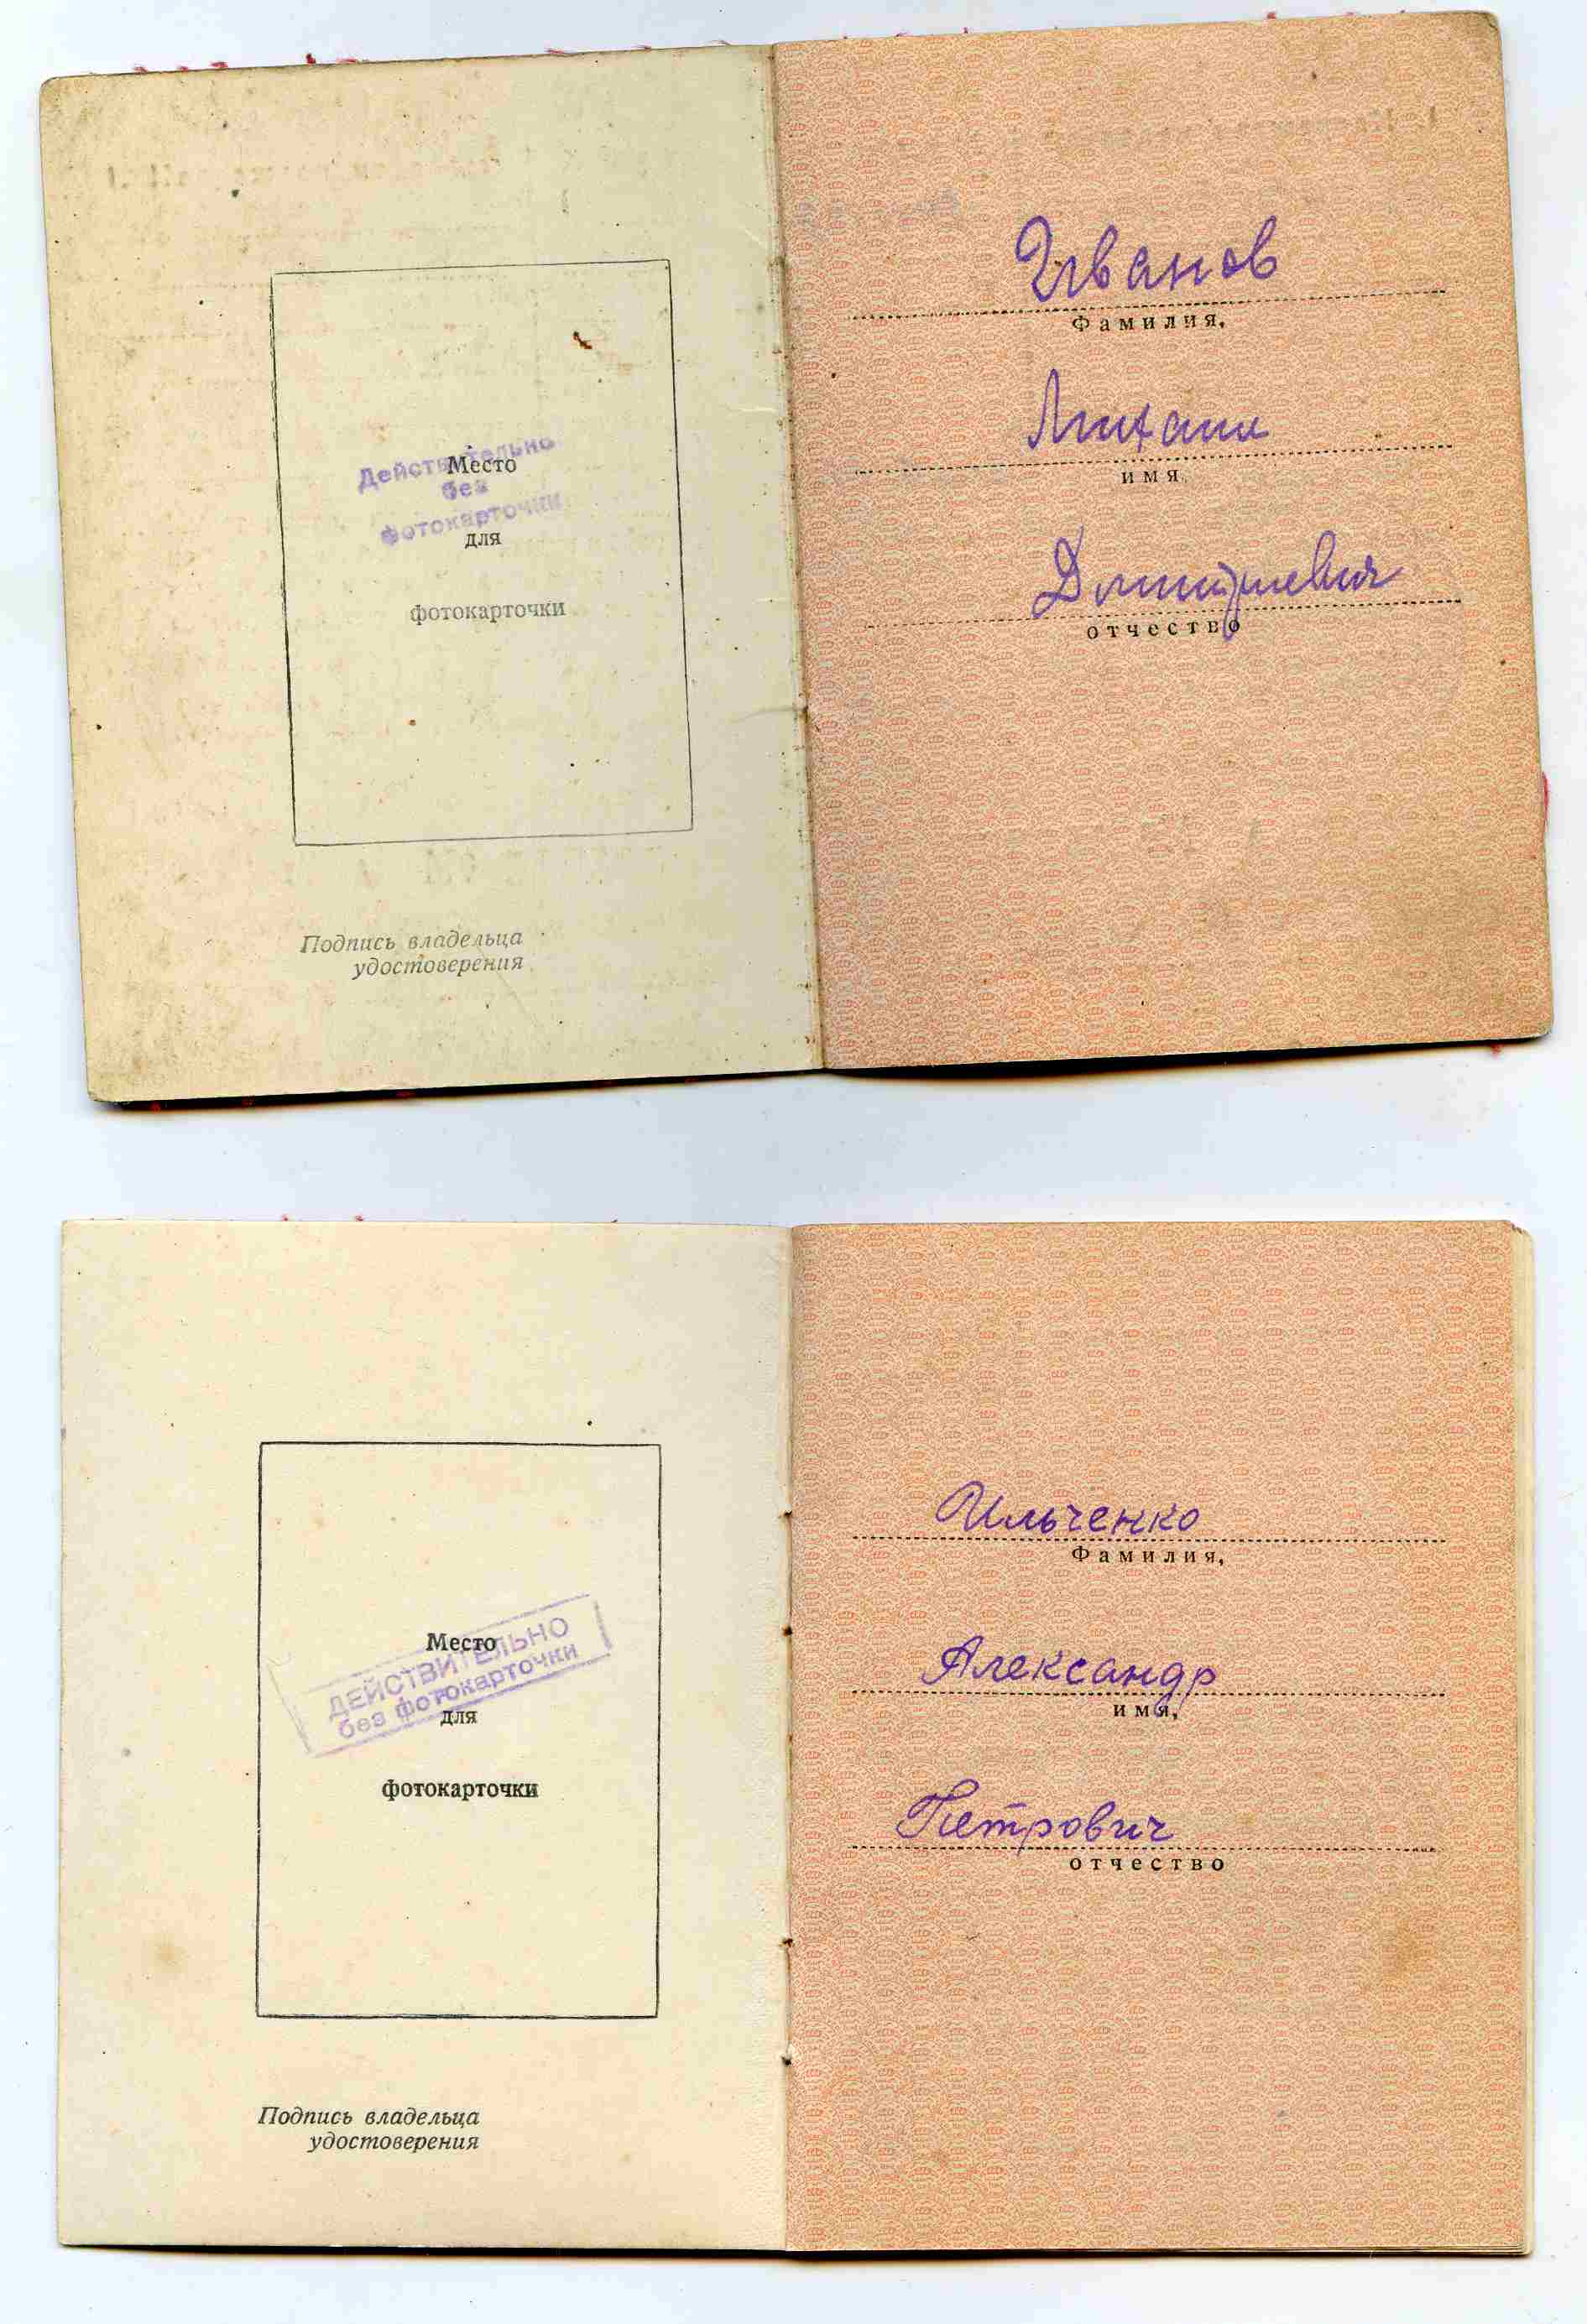 Действительно
без
фотокарточки
Место
для
фотокарточки
Подпись владельца
удостоверения
Иванов
Фамилия,
Михаил
имя,
Дмитриевич
отчество
ДЕЙСТВИТЕЛЬНО
без фотокарточки
Место
для
фотокарточки
Подпись владельца
удостоверения
Ильченко
Фамилия,
Александр
имя,
Петрович
отчество